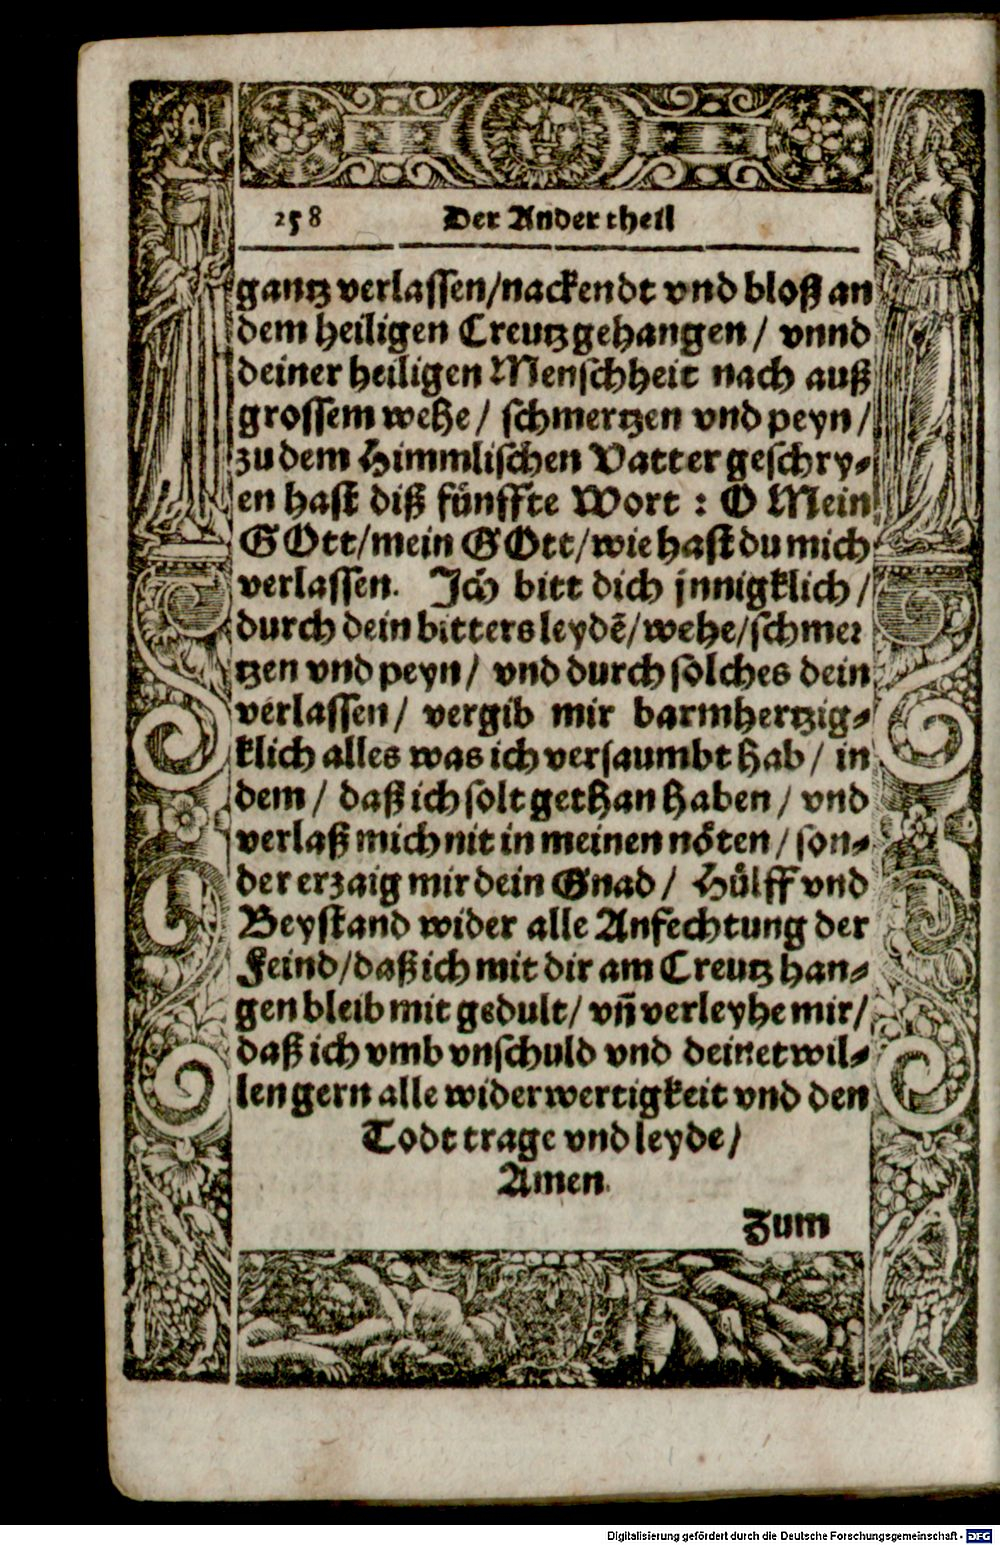 258 Der Ander theil
gantz verlassen/nackendt vnd bloß an
dem heiligen Creutz gehangen/ vnnd
deiner heiligen Menschheit nach auß
grossem wehe/ schmertzen vnd peyn/
zu dem Himmlischen Vatter geschry-
en hast diß fünffte Wort : O Mein
GOtt/mein GOtt/wie hast du mich
verlassen. Jch bitt dich jnnigklich/
durch dein bitters leydẽ/wehe/schmer
tzen vnd peyn/ vnd durch solches dein
verlassen/ vergib mir barmhertzig-
klich alles was ich versaumbt hab/ in
dem/ daß ich solt gethan haben/ vnd
verlaß mich nit in meinen nöten/ son-
der erzaig mir dein Gnad/ Hülff vnd
Beystand wider alle Anfechtung der
Feind/daß ich mit dir am Creutz han-
gen bleib mit gedult/ vñ verleyhe mir/
daß ich vmb vnschuld vnd deinet wil-
len gern alle widerwertigkeit vnd den
Todt trage vnd leyde/
Amen.
Zum
Digitalisierung gefördert durch die Deutsche Forschungsgemeinschaft - DFG